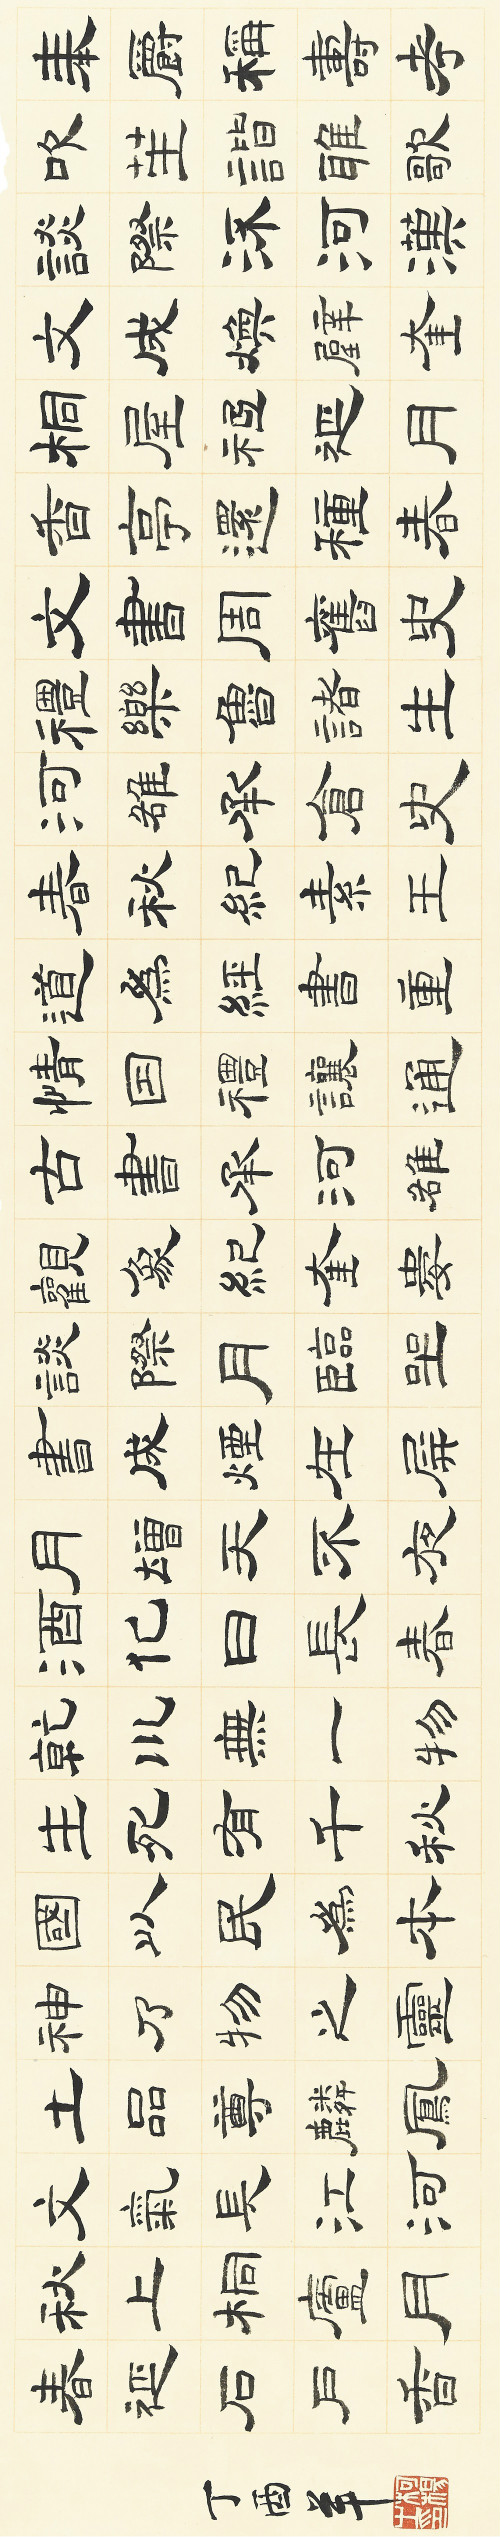 奉爵稱壽孝
吹笙諧雅歌
談際河漢
文成煥奎
桐屋祗延月
香亭還種春
文書周舊史
禮樂魯諸生
河雒承倉史
春秋紀素王
道為經書重
情因禮讓通
古書承河雒
觀象紀奎婁
談際月臨坐
書成煙在屏
月增天不夜
酒化日長春
乾巛無一物
生死有千秋
國以民為本
神乃物之靈
士品尊麟鳳
文氣長江河
秋上桐廬月
春延石戶香
丁酉年